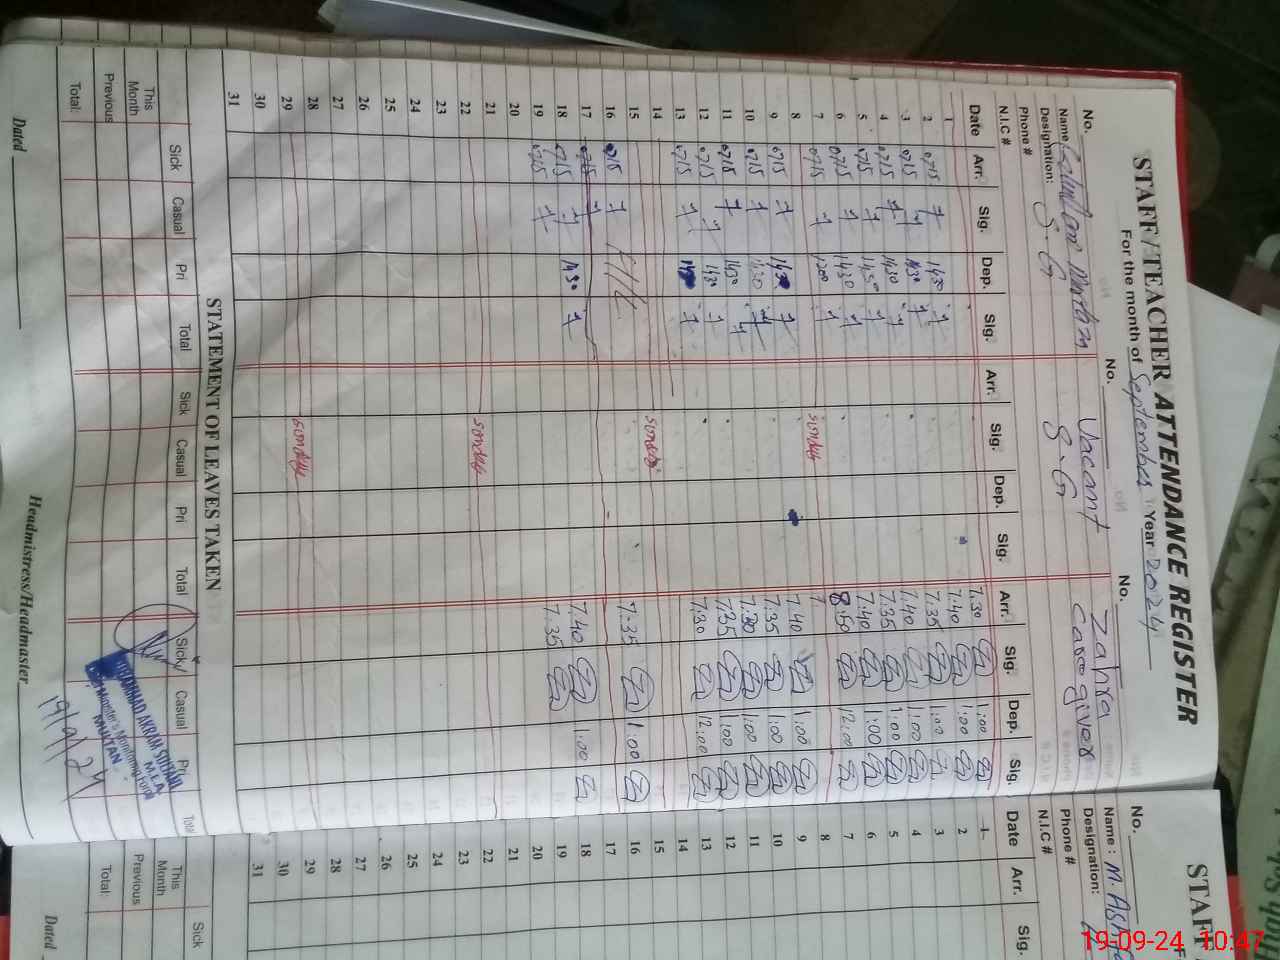 STAFF/TEACHER ATTENDANCE REGISTER
For the month of September Year 2024
No. No. No.
Name Vacant Zahra
Designation: S.G S.G Care giver
Phone #
N.I.C #
Date Arr. Sig. Dep. Sig. Arr. Sig. Dep. Sig. Arr. Sig. Dep. Sig.
1 7.30 1:00
2 0715 1430 7.40 1:00
3 0715 1430 7.35 1:00
4 0715 1430 7.40 1:00
5 0715 1430 7.35 1:00
6 0715 1430 7.40 1:00
7 0715 1200 8:50 12:00
8 Sunday
9 0715 1430 7.40 1:00
10 0715 1430 7.35 1:00
11 0715 1430 7.30 1:00
12 0715 1430 7.35 1:00
13 0715 7.30 12:00
14
15 Sunday
16 0715 7.35 1:00
17 0715
18 0715 1430 7.40 1:00
19 0715 7.35
20
21
22 Sunday
23
24
25
26
27
28
29 Sunday
30
31
STATEMENT OF LEAVES TAKEN
Sick Casual Pri Total Sick Casual Pri Total Sick Casual Pri Total
This Month
Previous
Total:
MUHAMMAD AKRAM
M.E.A
Chief Minister's Monitoring Force
MULTAN
19/9/24
Dated Headmistress/Headmaster
STAFF
No.
Name : M. Ash
Designation:
Phone #
N.I.C #
Date Arr. Sig.
1
2
3
4
5
6
7
8
9
10
11
12
13
14
15
16
17
18
19
20
21
22
23
24
25
26
27
28
29
30
31
Sick
This Month
Previous
Total:
Dated
19-09-24 10:47